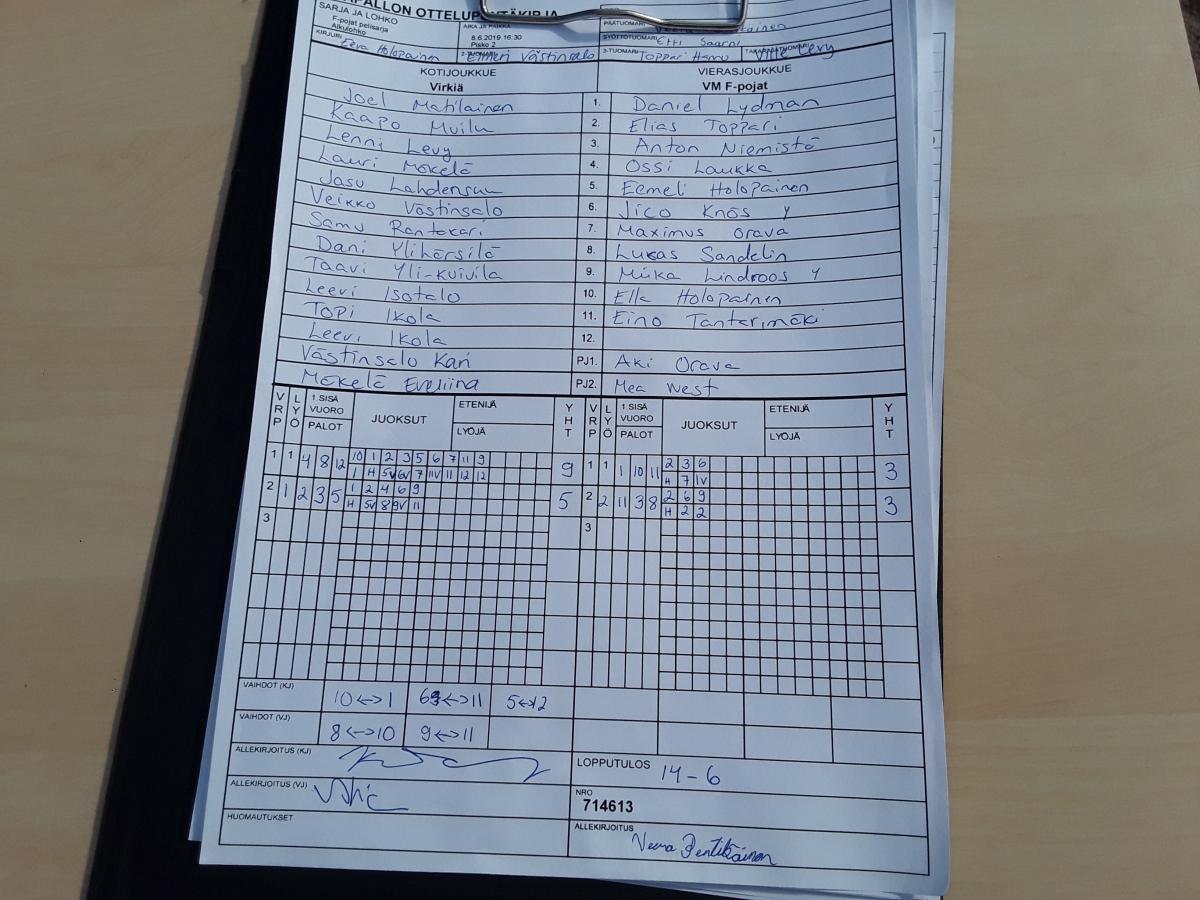 SARJA JA LOHKO
F-pojat pelisarja
Alkulohko
AIKA JA PAIKKA
8.6.2019 16:30
Pisko 2
PÄÄTUOMARI
SYÖTTÖTUOMARI Etti Saarni
KIRJURI Eeva Holopainen 2-TUOMARI Elmeri Västinsalo 3-TUOMARI Toppari Hannu TAKARAJATUOMARI Ville Levy
KOTIJOUKKUE VIERASJOUKKUE
Virkiä VM F-pojat
Joel Matilainen 1. Daniel Lydman
Kaapo Muilu 2. Elias Toppari
Lenni Levy 3. Anton Niemistö
Lauri Mäkelä 4. Ossi Laukka
Jasu Lahdensuu 5. Eemeli Holopainen
Veikko Västinsalo 6. Jico Knås y
Samu Rantakari 7. Maximus Orava
Dani Ylihärsilä 8. Lukas Sandelin
Taavi Yli-kuivila 9. Miika Lindroos Y
Leevi Isotalo 10. Ella Holopainen
Topi Ikola 11. Eino Tantarimäki
Leevi Ikola 12.
Västinsalo Kari PJ1. Aki Orava
Mäkelä Eveliina PJ2. Mea West
VRP LYÖ 1.SISÄ VUORO PALOT JUOKSUT ETENIJÄ LYÖJÄ YHT VRP LYÖ 1.SISÄ VUORO PALOT JUOKSUT ETENIJÄ LYÖJÄ YHT
1 1 4 8 12 10 1 2 3 5 6 7 11 9 9 1 1 1 10 11 2 3 6 3
1 H 5V 6V 7 11V 11 12 12 H 7 1V
2 1 2 3 5 1 2 4 6 9 5 2 2 11 3 8 2 6 9 3
H 5V 8 9V 11 H 2 2
3 3
VAIHDOT (KJ) 10<->1 <->11 5<->12
VAIHDOT (VJ) 8<->10 9<->11
ALLEKIRJOITUS (KJ) LOPPUTULOS 14-6
ALLEKIRJOITUS (VJ) NRO
714613
HUOMAUTUKSET ALLEKIRJOITUS Veera Pentikäinen